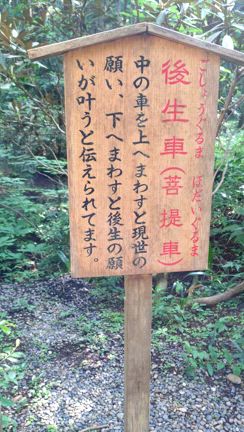 ごしょうぐるま ぼだいぐるま
後生車(菩提車)
中の車を上へまわすと現世の
願い、下へまわすと後生の願
いが叶うと伝えられてます。